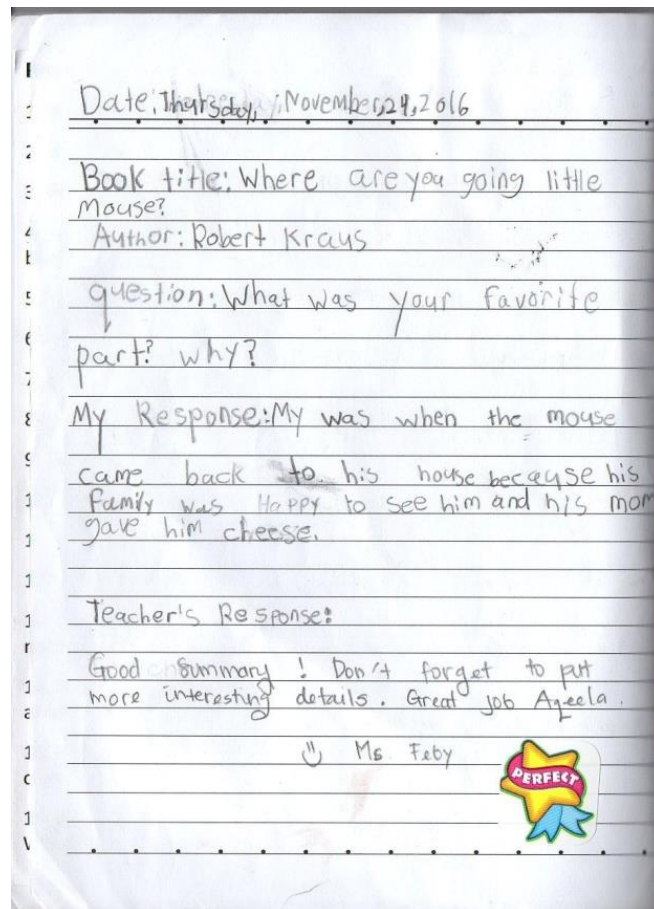 Date: Thursday, November, 24, 2016
Book title: Where are you going little
Mouse?
Author: Robert Kraus
question: What was your favorite
part? why?
My Response: My was when the mouse
came back to his house because his
family was Happy to see him and his mom
gave him cheese.
Teacher's Response:
Good Summary ! Don't forget to put
more interesting details. Great job Aqeela.
Ms Feby
PERFECT